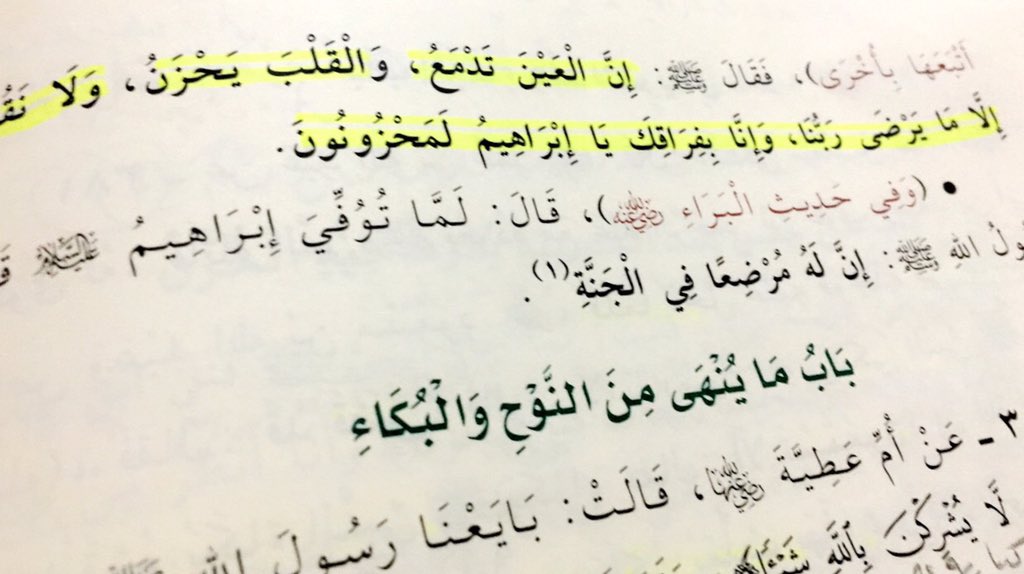 أَتْبَعَهَا بِأُخْرَى)، فَقَالَ ﷺ: إِنَّ الْعَيْنَ تَدْمَعُ، وَالْقَلْبَ يَحْزَنُ، وَلَا نَقُ
إِلَّا مَا يَرْضَى رَبُّنَا، وَإِنَّا بِفِرَاقِكَ يَا إِبْرَاهِيمُ لَمَحْزُونُونَ.
• (وَفِي حَدِيثِ الْبَرَاءِ رضي الله عنه)، قَالَ: لَمَّا تُوُفِّيَ إِبْرَاهِيمُ عليه السلام
ولُ اللهِ ﷺ: إِنَّ لَهُ مُرْضِعًا فِي الْجَنَّةِ(١).
بَابُ مَا يُنْهَى مِنَ النَّوْحِ وَالْبُكَاءِ
٣ - عَنْ أُمِّ عَطِيَّةَ رضي الله عنها، قَالَتْ: بَايَعْنَا رَسُولَ الله
لَّا يُشْرِكْنَ بِٱللَّهِ شَيْـًٔا